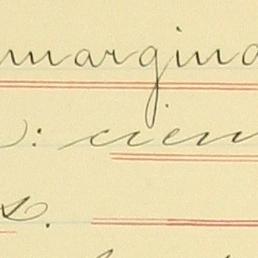 margina
: cien
s.